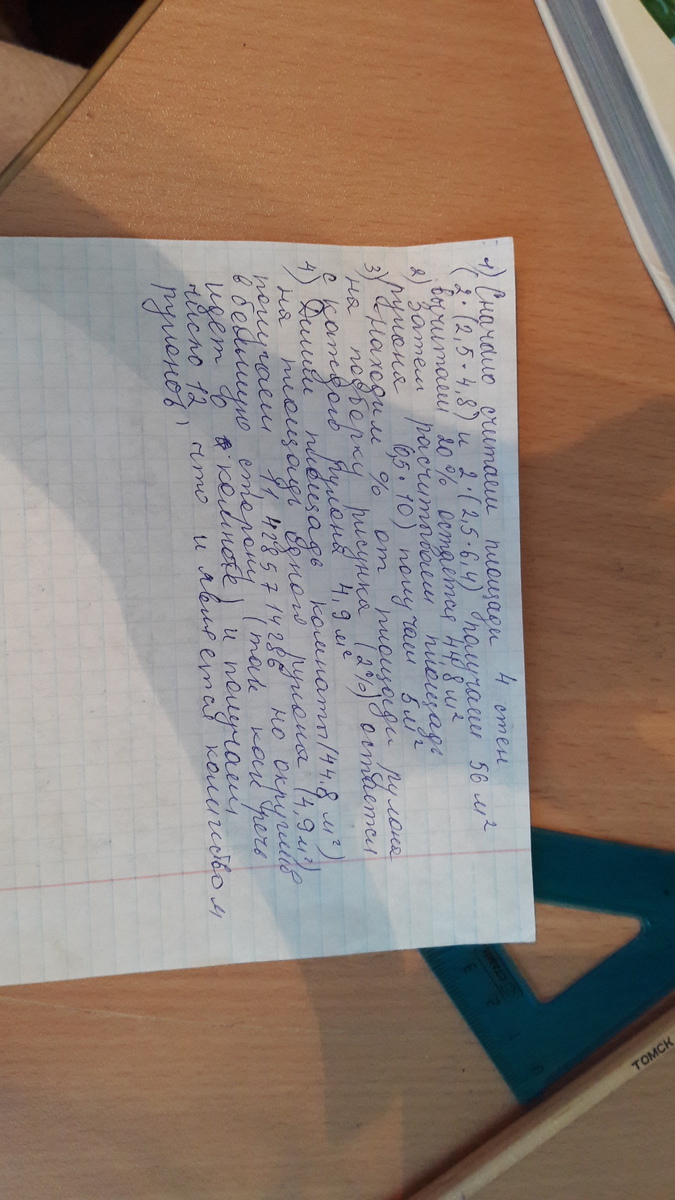 1) Сначало считаем площади 4 стен
(2·(2,5·4,8) и 2·(2,5·6,4) получаем 56 м²
вычитаем 20% остается 44,8 м²
2) Затем расчитываем площадь
рулона (0,5·10) получам 5 м²
3) Находим % от площади рулона
на подборку рисунка (2%) остается
с каждого рулона 4,9 м²
4) Делим площадь комнаты (44.8 м²)
на площадь одного рулона (4,9 м²)
получаем 11,42857 14286 но округлив
в большую сторону (так как речь
идет о комнате) и получаем
число 12, что и является количеством
рулонов
ТОМСК